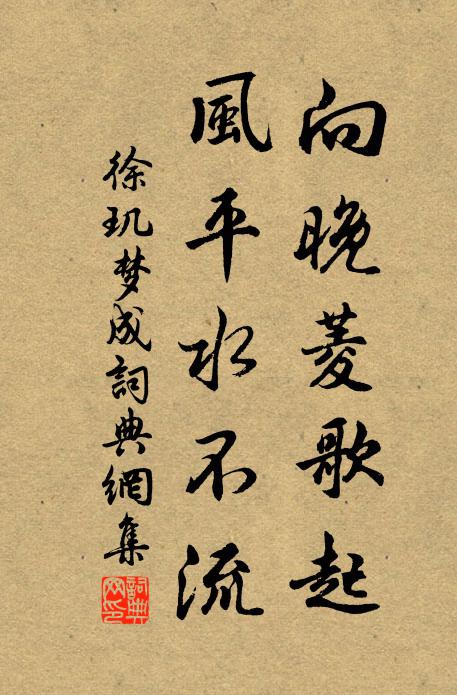 向晚菱歌起
風平水不流
徐玑梦成詞典網集
詞典網印